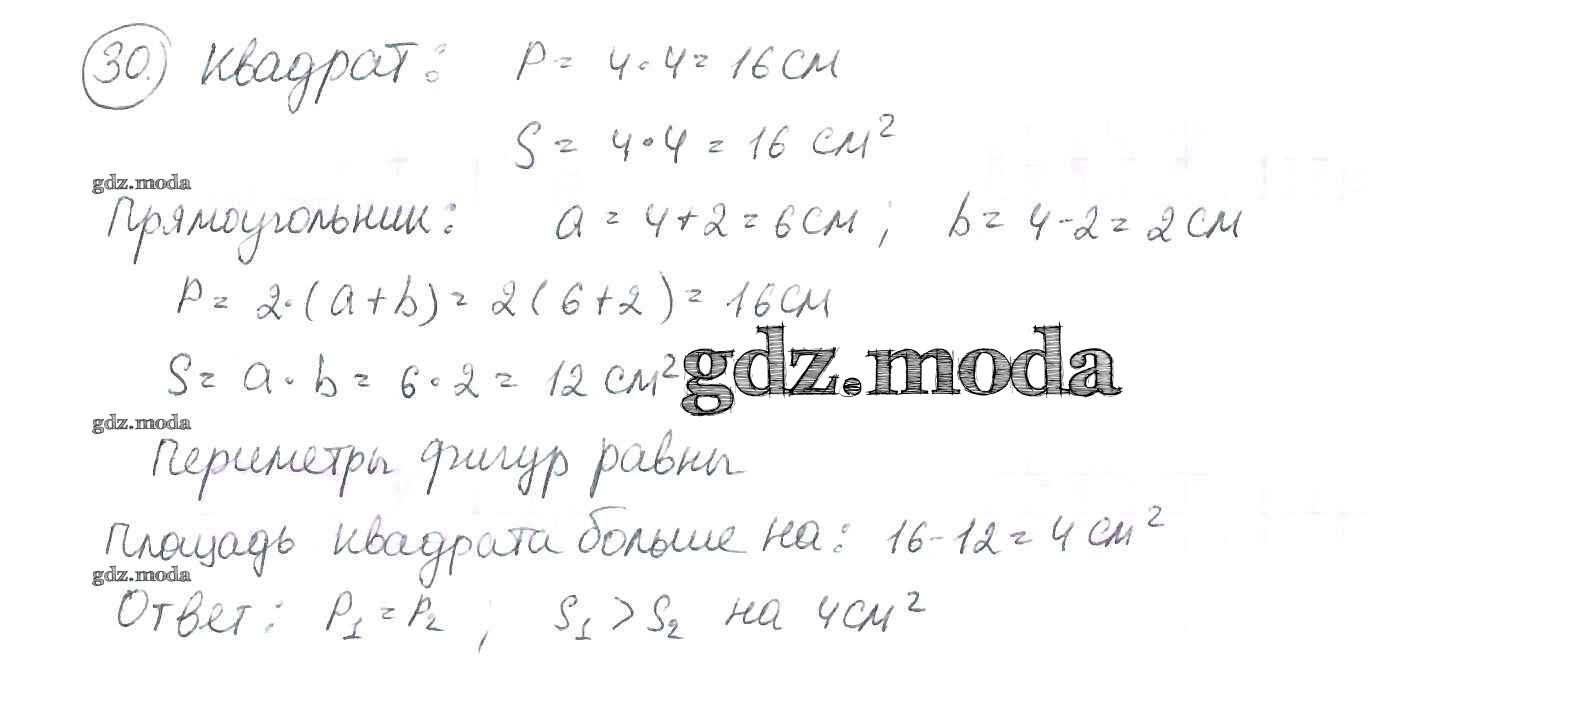 30. Квадрат: P = 4·4 = 16 см
S = 4·4 = 16 см²
gdz.moda
Прямоугольник: a = 4+2 = 6 см; b = 4-2 = 2 см
P = 2·(a+b) = 2(6+2) = 16 см
S = a·b = 6·2 = 12 см²
gdz.moda
gdz.moda
Периметры фигур равны
Площадь квадрата больше на: 16-12 = 4 см²
gdz.moda
Ответ: P₁ = P₂; S₁ > S₂ на 4 см²